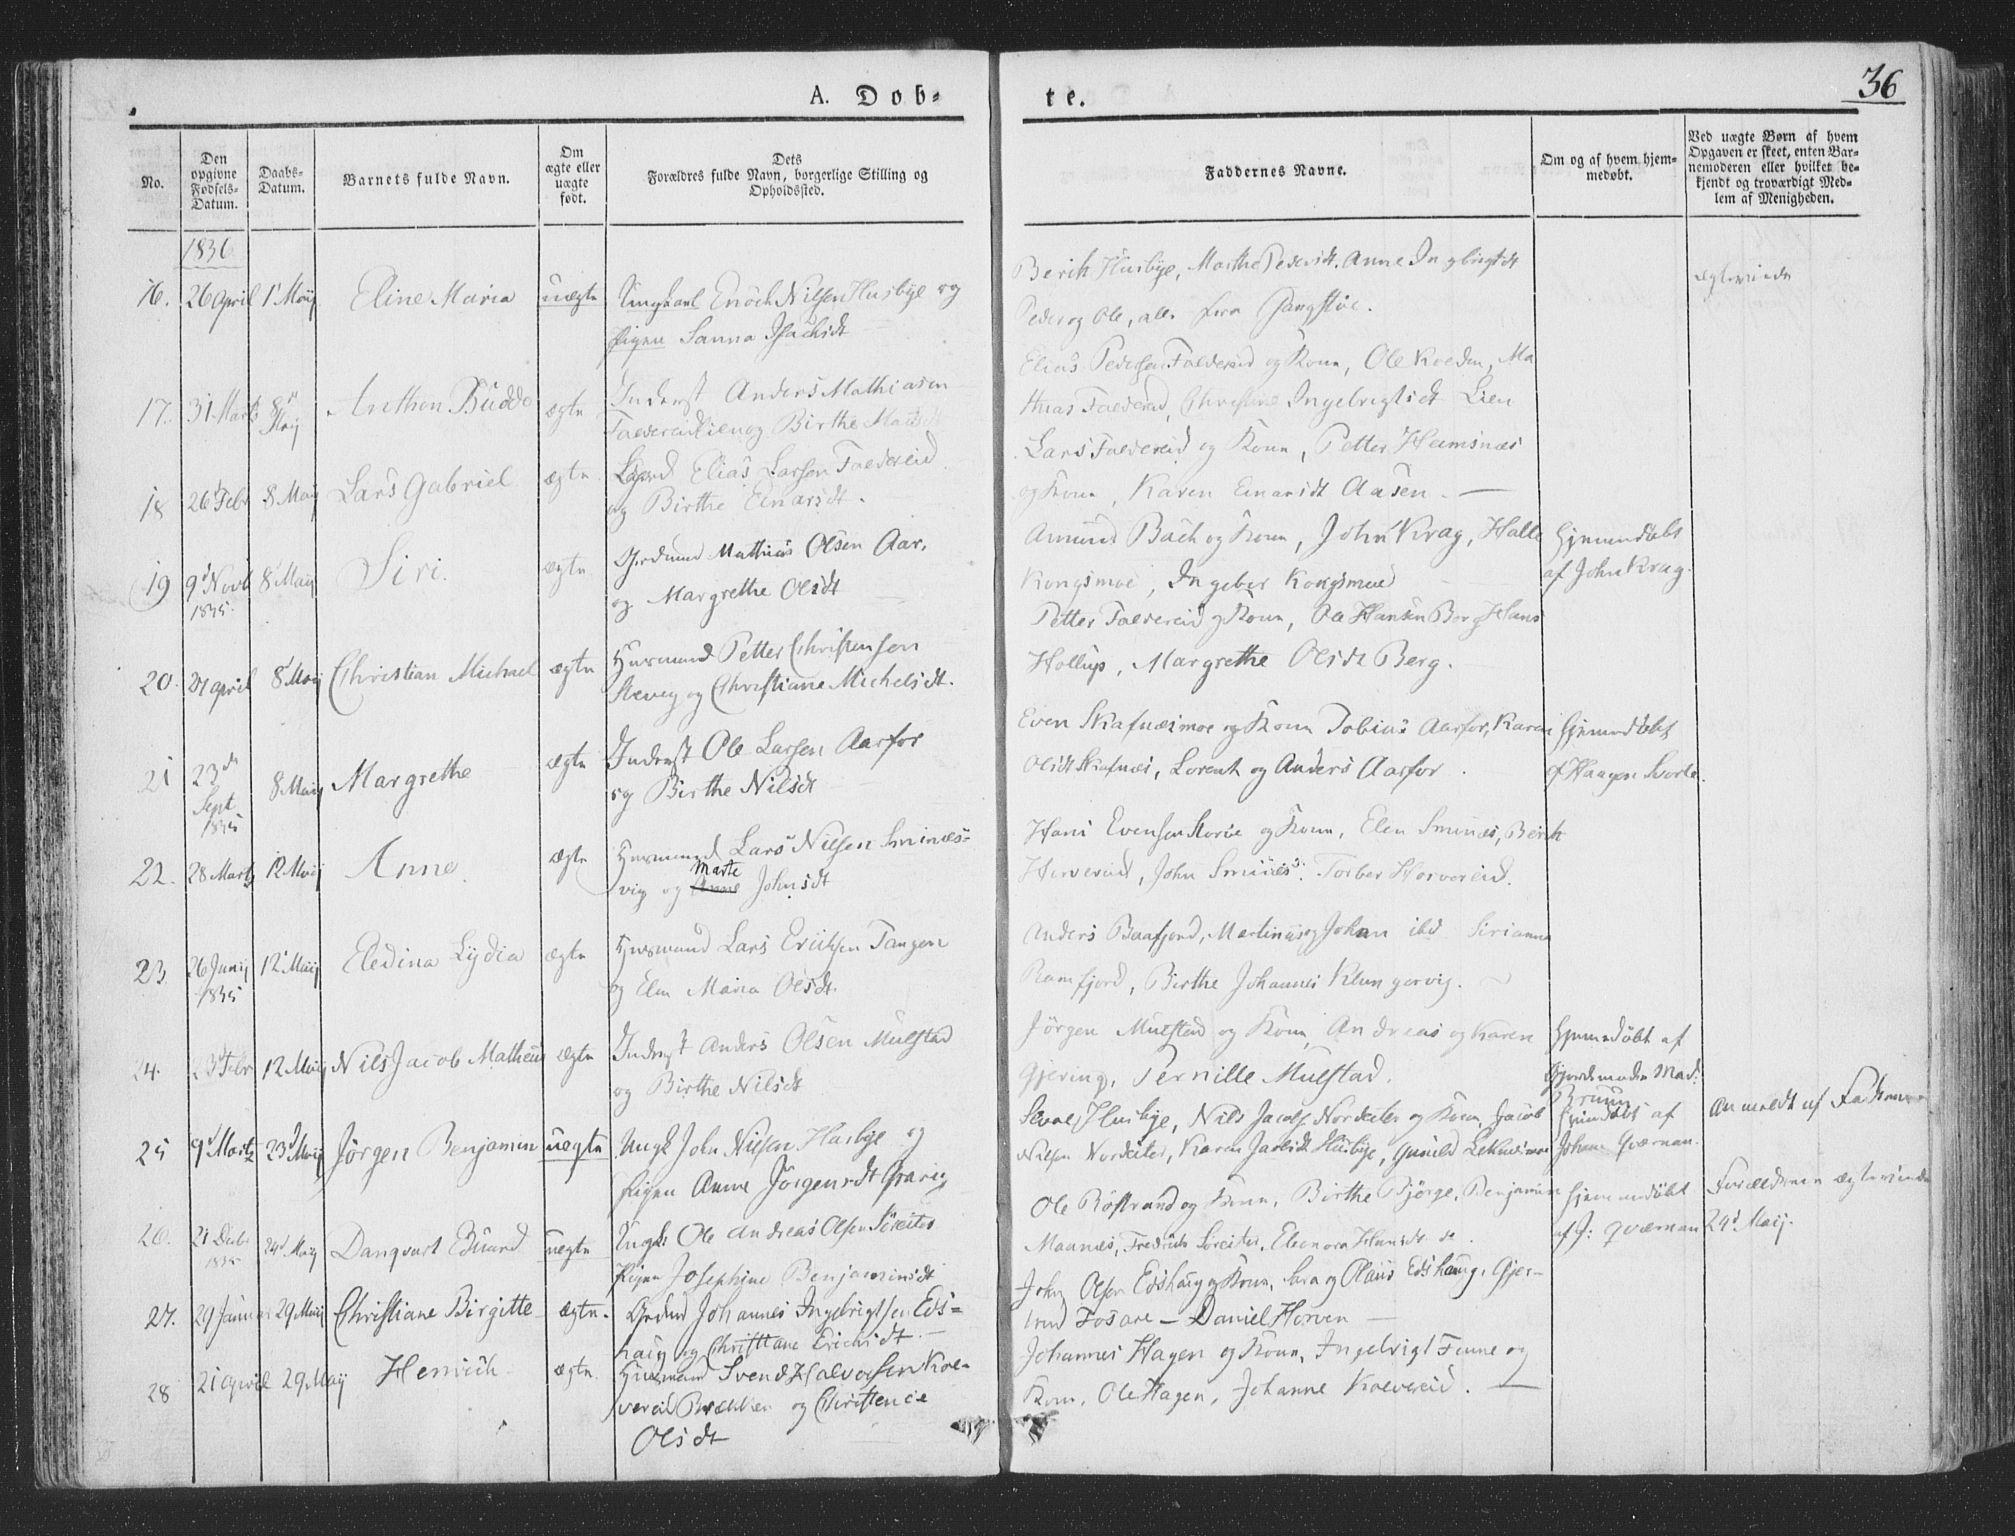 36
A. Dob-
te.
No.
Den opgivne Fødsels-Datum.
Daabs-Datum.
Barnets fulde Navn.
Om ægte eller uægte født.
Dets Forældres fulde Navn, borgerlige Stilling og Opholdssted.
Faddernes Navne.
Om og af hvem hjem-medøbt.
Ved uægte Børn af hvem Opgaven er skeet, enten Bar-nemoderen eller hvilket be-kjendt og troværdigt Med-lem af Menigheden.
1836
16. 26 April 1 Maij Eline Maria uægte Ungkarl Enoch Nilsen Husbye og
Pigen Sanna Isachsdt
Berith Husbye, Marthe Pedersdt. Anne Ingebrigtdt
Peder og Ole, alle fra
17. 31 Marts 8 Maij Anthon Budde ægte Inderst Anders Mathiasen
Foldereid og Birthe Matsdt
Elias Pedersen Foldereid og Kone, Ole Koeden, Ma
thias Foldereid, Christine Ingebrigtsdt Lien
18 26 Febr 8 Maij Lars Gabriel ægte Elias Larsen Foldereid
og Birthe Einarsdt.
Lars Foldereid og Kone, Petter Heimsnæs
og Kone, Karen Einarsdt Aasen.
19 9 Novb 1835. 8 Maij Siri. ægte Grdmnd Mathias Olsen Aar.
og Margrethe Olsdt
Amund Bach og Kone, John Krag, Halle
Kongsmoe, Ingebor Kongsmoe
Hjemmedøbt
af John Krag.
20. 21 April 8 Maij Christian Michael ægte Huusmand Petter Christensen
og Christiane Michelsdt.
Petter Foldereid og Kone, Ole Hansen Berg Hans
Hollup, Margrethe Olsdt Berg.
21 23de Sept 1835 8 Maij Margrethe ægte Inderst Ole Larsen Aarfor
og Birthe Nilsdt
Even Skafnæsmoe og Kone Tobias Aarfor, Karen
Olsdt Skafnæs, Lorents og Anders Aarfor.
Hjemmedøbt
af Haagen
22. 28 Marts 12 Maij Anne. ægte Huusmand Lars Nilsen Smines-
vig og Anne Marte Johnsdt
Hans Evensen og Kone, Elen Sminæs, Berit
Horvereid, John Sminæs. Torber Horvereid.
23. 26 Junij 1835 12 Maij Eledina Lydia ægte Huusmand Lars Eriksen Tangen
og Elen Maria Olsdt.
Anders Baafjord, Martinus og Johan ibd Sirianna
Ramfjord, Birthe Johannes Klungervig.
24. 23 Febr 12 Maij Nils Jacob Matheus ægte Inderst Anders Olsen Mulstad
og Birthe Nilsdt
Jörgen Mulstad og Kone, Andreas og Karen
Gjering, Pernille Mulstad.
Hjemmedöbt af
Gjordemoder Mad:
Bruun
25 9 Marts 23 Maij Jörgen Benjamin uægte Ungk John Nilsen Husbye og
Pigen Anne Jörgensdt
Husbye, Nils Jacobs og Kone, Jacob
Nilsen, Karen Jacobsdt Husbye, Gunild
Hjemdøbt af
Johan Qværnan.
Anmeldt af Faderen
26. 21 Decbr 1835 24 Maij Danqvart Eduard uægte Ungk: Ole Andreas Olsen Söreiter
Pigen Josephine Benjaminsdt
Ole Rostrand og Kone, Birthe Bjørge, Benjamin
Maanes, Fredrik Söreiter, Eleonora Hansdt
Hjemmedöbt
af J: Qværnan
Forældrene ægteviede
24 Maij.
27. 29 Januar 29 Maij Christiane Birgitte ægte. Grdmd Johannes Ingebrigtsen Eds-
haug og Christiane Erichsdt.
John Olsen Edshaug og Kone, Sara og Olaus Edshaug, Gjer-
trud Fosaae – Daniel Horven –
28 21 April 29 Maij Henrich ægte. Huusmand Svend Halvorsen Koe-
vereid Brækken og Christence
Olsdt
Johannes Hagen og Kone, Ingebrigt Finne og
Kone, Ole Hagen, Johanne Kolvereid.